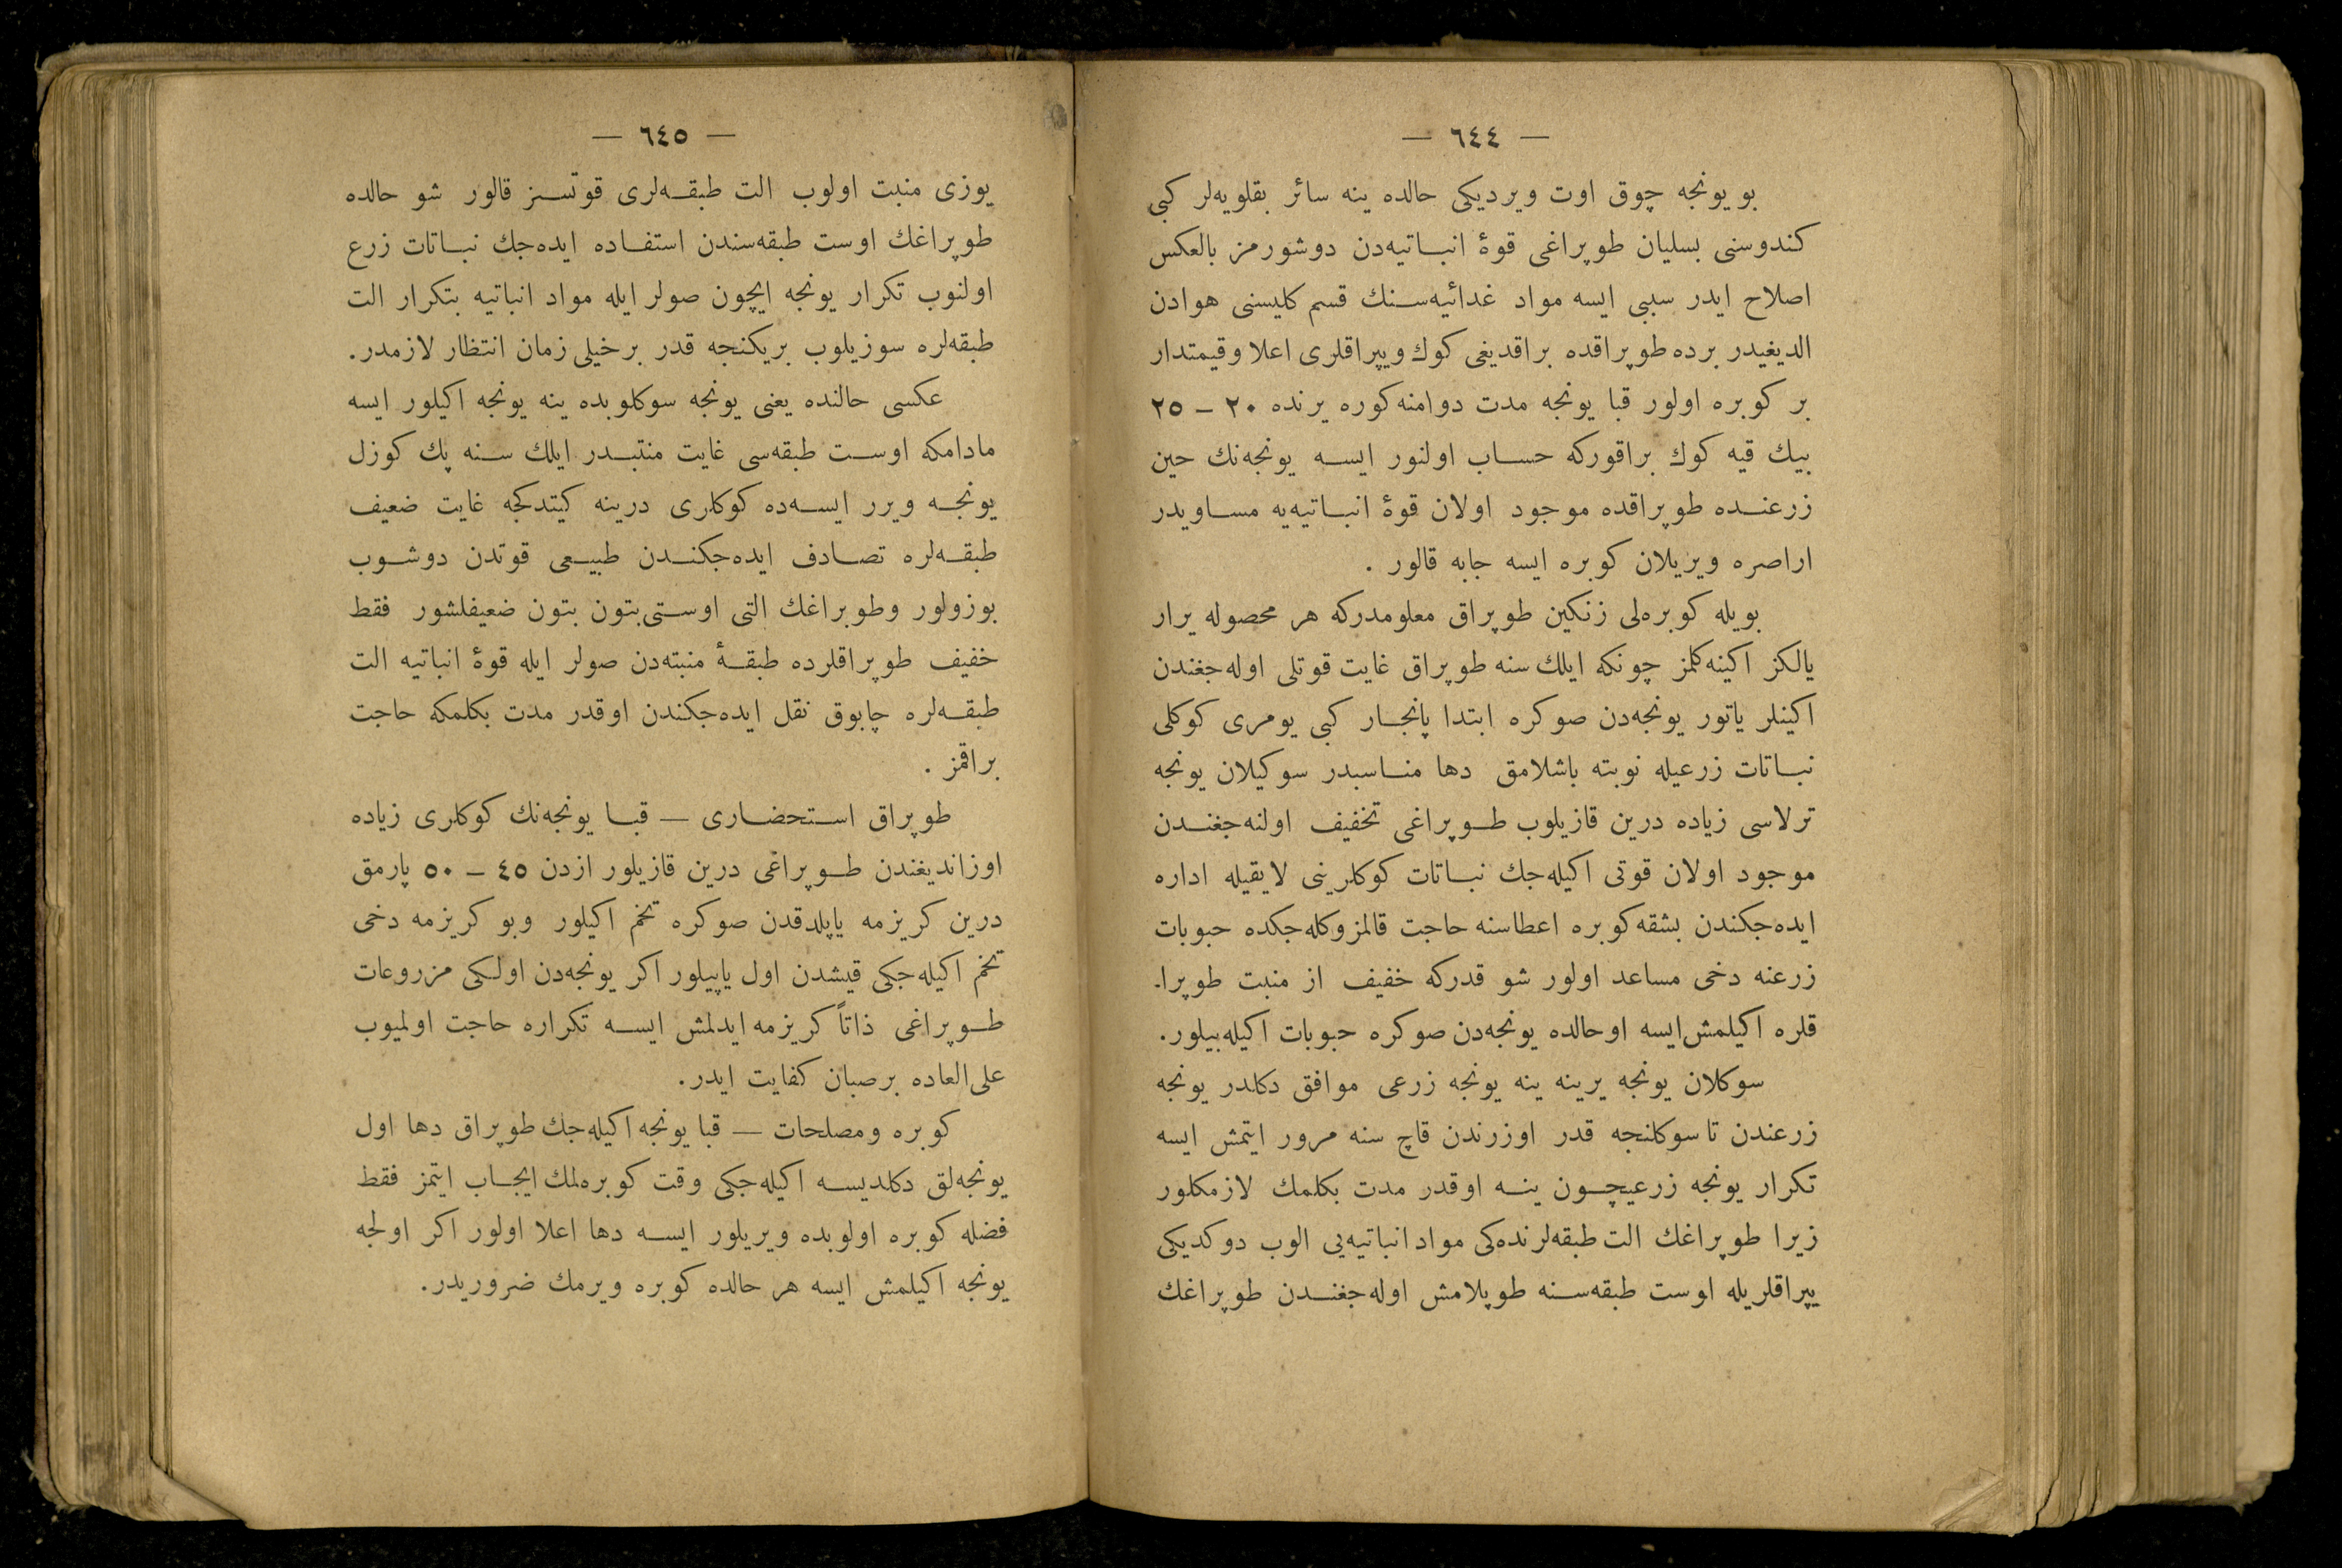 — ٦٤٤ —
بو یونجه چوق اوت ویردیکی حالده ینه سائر بقلویه‌لر کبی
کندوسنی بسلیان طوپراغی قوۀ انباتیه‌دن دوشورمز بالعکس
اصلاح ایدر سببی ایسه مواد غدائیه‌سنك قسم کلیسنی هوادن
الدیغیدر برده طوپراقده براقدیغی كوك ویپراقلری اعلا وقیمتدار
بر کوبره اولور قبا یونجه مدت دوامنه کوره یرنده ٢٠ – ٢٥
بیك قیه كوك براقورکه حساب اولنور ایسه یونجه‌نك حین
زرعنده طوپراقده موجود اولان قوۀ انباتیه‌یه مساویدر
اراصره ویریلان کوبره ایسه جابه قالور .
بویله کوبره‌لی زنکین طوپراق معلومدرکه هر محصوله یرار
یالکز اکینه کلمز چونکه ایلك سنه طوپراق غایت قوتلی اوله‌جغندن
اکینلر یاتور یونجه‌دن صوکره ابتدا پانجار کبی یومری کوکلی
نباتات زرعیله نوبته باشلامق دها مناسبدر سوکیلان یونجه
ترلاسی زیاده درین قازیلوب طوپراغی تخفیف اولنه‌جغندن
موجود اولان قوتی اکیله‌جك نباتات کوکلرینی لایقیله اداره
ایده‌جکندن بشقه کوبره اعطاسنه حاجت قالمز وکله‌جکده حبوبات
زرعنه دخی مساعد اولور شو قدرکه خفیف از منبت طوپرا-
قلره اکیلمش ایسه اوحالده یونجه‌دن صوکره حبوبات اکیله‌بیلور.
سوکلان یونجه یرینه ینه یونجه زرعی موافق دکلدر یونجه
زرعندن تا سوکلنجه قدر اوزرندن قاچ سنه مرور ایتمش ایسه
تکرار یونجه زرعیچون ینه اوقدر مدت بکلمك لازمکلور
زیرا طوپراغك الت طبقه‌لرنده‌کی مواد انباتیه‌یی الوب دوکدیکی
یپراقلریله اوست طبقه‌سنه طوپلامش اوله‌جغندن طوپراغك
— ٦٤٥ —
یوزی منبت اولوب الت طبقه‌لری قوتسز قالور شو حالده
طوپراغك اوست طبقه‌سندن استفاده ایده‌جك نباتات زرع
اولنوب تکرار یونجه ایچون صولر ایله مواد انباتیه بتکرار الت
طبقه‌لره سوزیلوب بریکنجه قدر برخیلی زمان انتظار لازمدر.
عکسی حالنده یعنی یونجه سوکلوبده ینه یونجه اکیلور ایسه
مادامکه اوست طبقه‌سی غایت منتبدر ایلك سنه پك کوزل
یونجه ویرر ایسه‌ده کوکلری درینه کیتدکجه غایت ضعیف
طبقه‌لره تصادف ایده‌جکندن طبیعی قوتدن دوشوب
بوزولور وطوبراغك التی اوستی بتون بتون ضعیفلشور فقط
خفیف طوپراقلرده طبقۀ منبته‌دن صولر ایله قوۀ انباتیه الت
طبقه‌لره چابوق نقل ایده‌جکندن اوقدر مدت بکلمکه حاجت
براقمز .
طوپراق استحضاری — قبا یونجه‌نك کوکلری زیاده
اوزاندیغندن طوپراغی درین قازیلور ازدن ٤٥ – ٥٠ پارمق
درین کریزمه یاپلدقدن صوکره تخم اکیلور وبو کریزمه دخی
تخم اکیله‌جکی قیشدن اول یاپیلور اکر یونجه‌دن اولکی مزروعات
طوپراغی ذاتاً کریزمه ایدلمش ایسه تکراره حاجت اولمیوب
علی‌العاده برصبان کفایت ایدر.
کوبره ومصلحات — قبا یونجه اکیله‌جك طوپراق دها اول
یونجه‌لق دکلدیسه اکیله‌جکی وقت کوبره‌لمك ایجاب ایتمز فقط
فضله کوبره اولوبده ویریلور ایسه دها اعلا اولور اکر اولجه
یونجه اکیلمش ایسه هر حالده کوبره ویرمك ضروریدر.